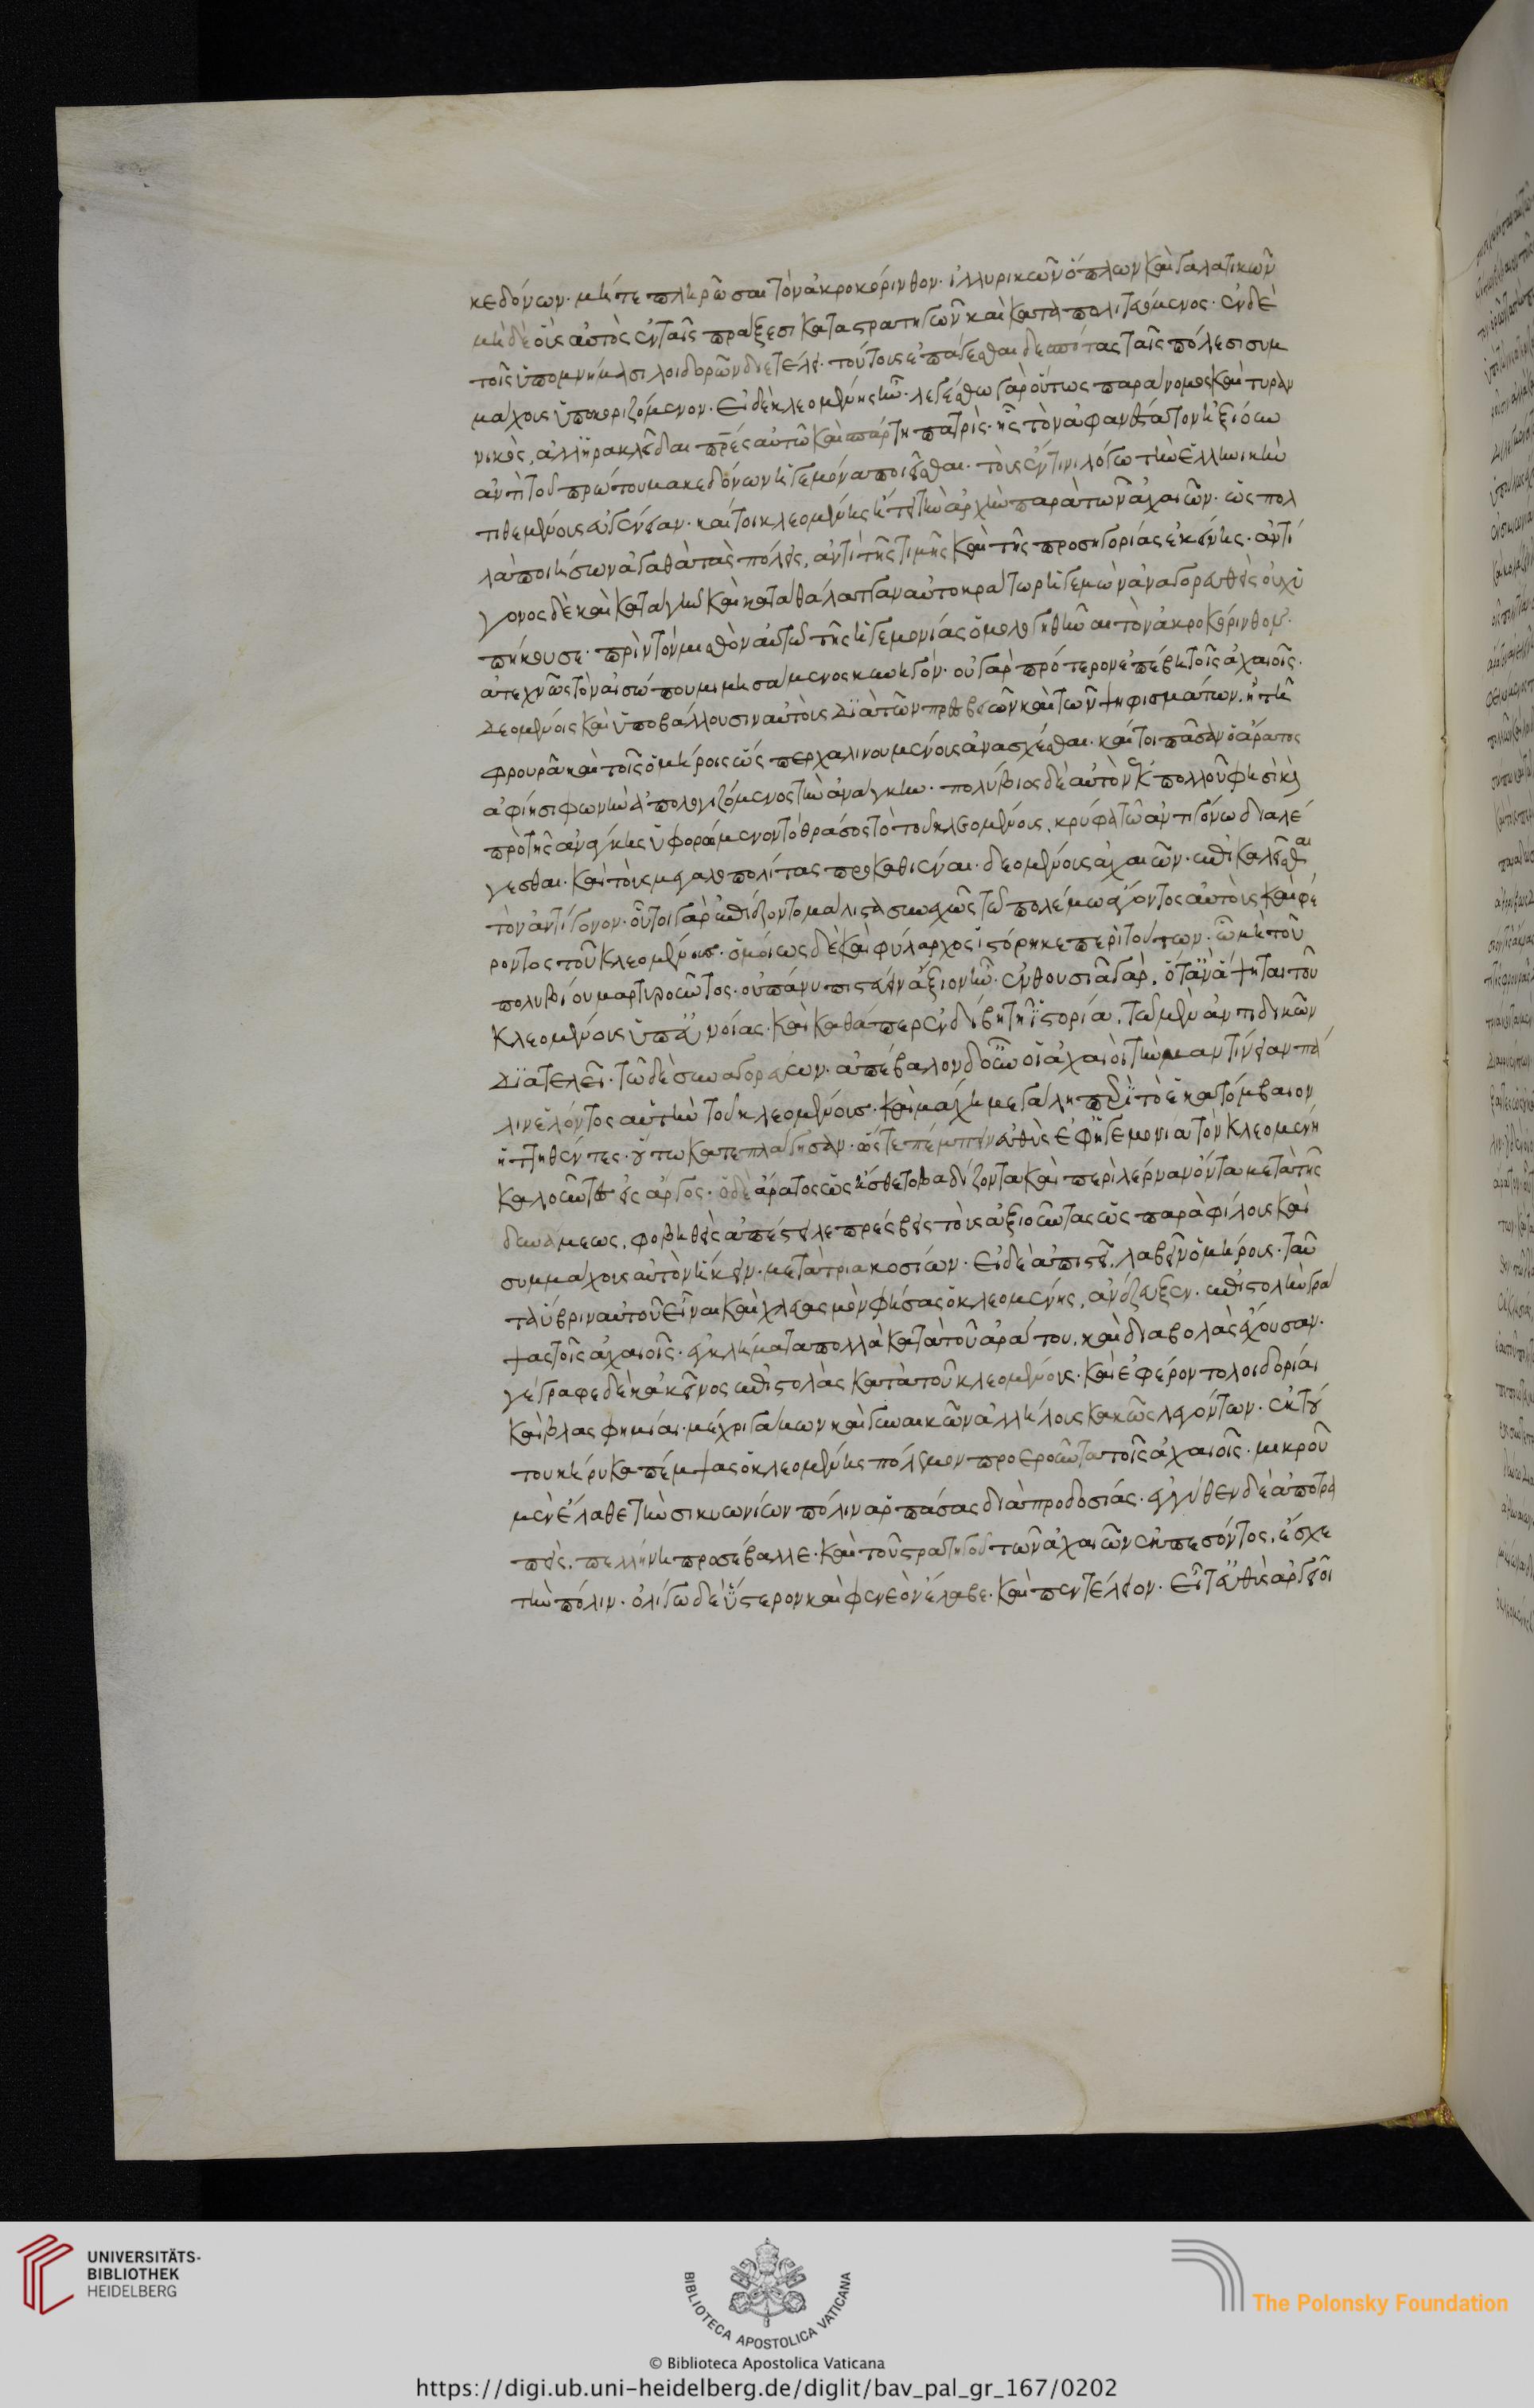 κεδόνων· μήτε πληρῶσαι τὸν ἀκροκόρινθον· ἰλλυρικῶν ὅπλων καὶ γαλατικῶν·
μηδὲ οὓς αὐτὸς ἐν ταῖς πράξεσι καταστρατηγῶν καὶ καταπολιτευόμενος· ἐν δὲ
τοῖς ὑπομνήμασι λοιδορῶν διετέλει· τούτους ἐπάγεσθαι δεσπότας ταῖς πόλεσι συμ
μάχους ὑποκοριζόμενον· εἰ δὲ κλεομένης ἦν· λεγέσθω γὰρ οὕτως παράνομος καὶ τυραν
νικὸς, ἀλλ' ἡρακλεῖδαι πρὲς αὐτῶ καὶ σπάρτη πατρὶς· ἧς τὸν ἀφανέστατον ἠξίουν
ἀντὶ τοῦ πρώτου μακεδόνων ἡγεμόνα ποιεῖσθαι· τοὺς ἔν τινι λόγω τὴν ἑλληνικὴν
τιθεμένους εὐγένειαν· καίτοι κλεομένης ἤτει τὴν ἀρχὴν παρὰ τῶν ἀχαιῶν· ὡς πολ
λὰ ποιήσων ἀγαθὰ τὰς πόλεις, ἀντὶ τῆς τιμῆς καὶ τῆς προσηγορίας ἐκείνης· ἀντί
γονος δὲ καὶ κατὰ γῆν καὶ κατὰ θάλατταν αὐτοκράτωρ ἡγεμὼν ἀναγορευθεὶς οὐχ ὑ
πήκουσε· πρὶν τὸν μισθὸν αὐτῶ τῆς ἡγεμονίας ὁμολογηθῆναι τὸν ἀκροκόρινθον·
ἀτεχνῶς τὸν αἰσώπου μιμησάμενος κυνηγόν· οὐ γὰρ πρότερον ἐπέβη τοῖς ἀχαιοῖς·
δεομένοις καὶ ὑποβάλλουσιν αὑτοὺς διὰ τῶν πρεσβειῶν καὶ τῶν ψηφισμάτων· ἢ τῆ
φρουρᾶ καὶ τοῖς ὁμήροις ὥσπερ χαλινουμένοις ἀνασχέσθαι· καίτοι πᾶσαν ὁ ἄρατος
ἀφίησι φωνὴν ἀπολογιζόμενος τὴν ἀνάγκην· πολύβιος δὲ αὐτὸν ἐκ πολλοῦ φησὶ καὶ
πρὸ τῆς ἀνάγκης ὑφορώμενον τὸ θράσος τὸ τοῦ κλεομένους, κρύφα τῶ ἀντιγόνω διαλέ
γεσθαι· καὶ τοὺς μεγαλοπολίτας προκαθιέναι· δεομένους ἀχαιῶν· ἐπικαλεῖσθαι
τὸν ἀντίγονον· οὗτοι γὰρ ἐπιέζοντο μάλιστα συνεχῶς τῶ πολέμω ἄγοντος αὐτοὺς καὶ φέ
ροντος τοῦ κλεομένους· ὁμοίως δὲ καὶ φύλαρχος ἱστόρηκε περὶ τούτων· ὧ μὴ τοῦ
πολυβίου μαρτυροῦντος· οὐ πάνυ πιστεύειν ἄξιον ἦν· ἐνθουσιᾶ γὰρ, ὅταν ἅψηται τοῦ
κλεομένους ὑπ' εὐνοίας· καὶ καθάπερ ἐν δίκη τῆ ἱστορία, τῶ μὲν ἀντιδικῶν
διατελεῖ· τῶ δὲ συναγορεύων· ἀπέβαλον δ' οὖν οἱ ἀχαιοὶ τὴν μαντίνειαν πά
λιν ἑλόντος αὐτὴν τοῦ κλεομένους· καὶ μάχη μεγάλη περὶ τὸ ἑκατόμβαιον
ἡττηθέντες· οὕτω κατεπλάγησαν· ὥστε πέμπειν εὐθὺς ἐφ' ἡγεμονία τὸν κλεομένη
καλοῦντες εἰς ἄργος· ὁ δὲ ἄρατος ὡς ἤσθετο βαδίζοντα καὶ περὶ λέρναν ὄντα μετὰ τῆς
δυνάμεως, φοβηθεὶς ἀπέστειλε πρέσβεις τοὺς ἀξιοῦντας ὡς παρὰ φίλους καὶ
συμμάχους αὐτὸν ἥκειν· μετὰ τριακοσίων· εἰ δὲ ἀπιστεῖ, λαβεῖν ὁμήρους· ταῦ
τα ὕβριν αὑτοῦ εἶναι καὶ χλευασμὸν φήσας ὁ κλεομένης, ἀνέζευξεν· ἐπιστολὴν γρά
ψας τοῖς ἀχαιοῖς· ἐγκλήματα πολλὰ κατὰ τοῦ ἀράτου, καὶ διαβολὰς ἔχουσαν·
γέγραφε δὲ κἀκεῖνος ἐπιστολὰς κατὰ τοῦ κλεομένους· καὶ ἐφέροντο λοιδορίαι
καὶ βλασφημίαι· μέχρι γάμων καὶ γυναικῶν ἀλλήλους κακῶς λεγόντων· ἐκ τού
του κήρυκα πέμψας ὁ κλεομένης πόλεμον προεροῦντα τοῖς ἀχαιοῖς· μικροῦ
μὲν ἔλαθε τὴν σικυωνίων πόλιν ἁρπάσας διὰ προδοσίας· ἐγγύθεν δὲ ἀποτρα
πεὶς, πελλήνη προσέβαλλε· καὶ τοῦ στρατηγοῦ τῶν ἀχαιῶν ἐκπεσόντος, ἔσχε
τὴν πόλιν· ὀλίγω δὲ ὕστερον καὶ φενεὸν ἔλαβε· καὶ πεντέλειον· εἶτ' εὐθὺς ἀργεῖοι
UNIVERSITÄTS-
BIBLIOTHEK
HEIDELBERG
BIBLIOTECA APOSTOLICA VATICANA
The Polonsky Foundation
© Biblioteca Apostolica Vaticana
https://digi.ub.uni-heidelberg.de/diglit/bav_pal_gr_167/0202